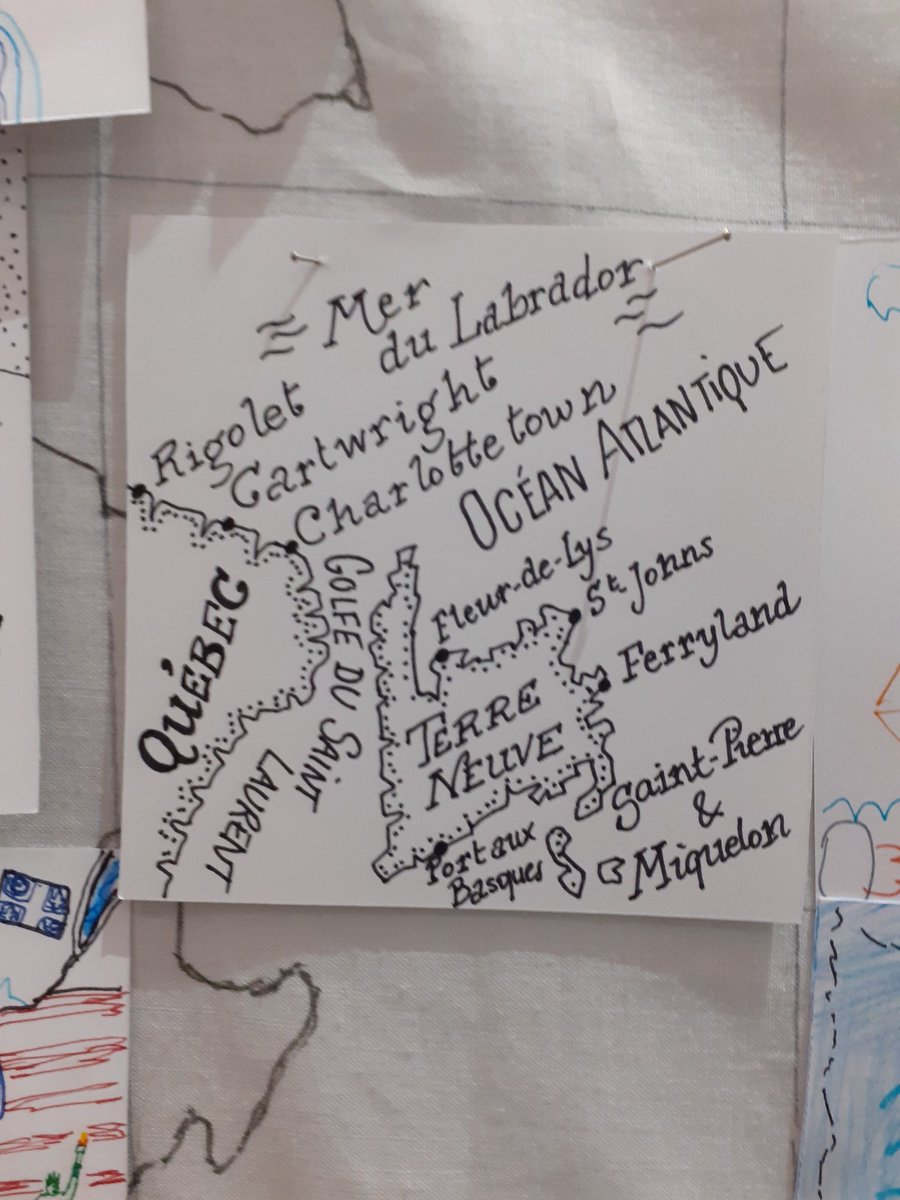 Mer
du Labrador
Rigolet
Cartwright
Charlottetown
OCÉAN ATLANTIQUE
QUÉBEC
GOLFE DU SAINT
LAURENT
Fleur-de-Lys
St Johns
Ferryland
TERRE
NEUVE
Port aux
Basques
Saint-Pierre
&
Miquelon